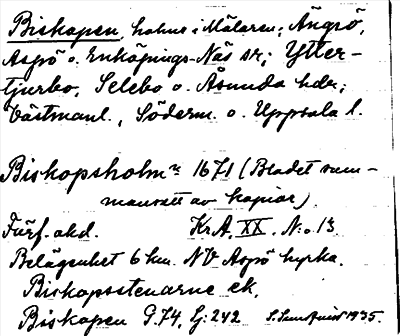 Biskopen, holme i Mälaren; Ängsö,
Aspö o. Enköpings-Näs sr; Ytter-
tjurbo, Selebo o. Åsunda hdr;
Västmanl., Söderm. o. Uppsala l.
Biskopsholmn 1671 (Bladet sam-
mansatt av kopior).
Förf. okd. Kr.A. XX. N:o 13.
Belägenhet 6 km. NV Aspö kyrka.
Biskopsstenarne ek.
Biskopen G.74, Lj:242 1935.